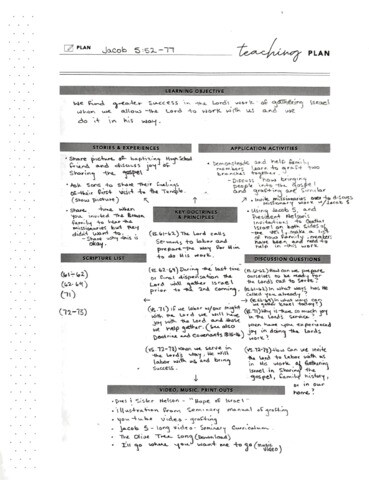 PLAN Jacob 5:52-77
teaching PLAN
LEARNING OBJECTIVE
We find greater success in the Lords work of gathering Israel
when we allow the Lord to work with us and we
do it in his way.
STORIES & EXPERIENCES
• Share picture of baptizing High School
friend and discuss joy of
Sharing the gospel
• Ask Sons to Share their feelings
of their first visit to the Temple.
(Show picture)
• Share time when
you invited The Brown
family to hear the
missionaries but they
didn't want to.
- Share why this is
okay.
APPLICATION ACTIVITIES
• Demonstrate and help family
members learn to graft two
branches together.
- Discuss how bringing
people into the Gospel
and grafting are similar
• Invite missionaries over to discuss
missionary work w/ Jacob 5
• Using Jacob 5 and
President Nelson's
invitations to Gather
Israel on both sides of
the veil, make a list
of how family members
have been and need to
help in this work
KEY DOCTRINES
& PRINCIPLES
(v. 61-62) The Lord calls
Servants to labor and
prepare the way for Him
to do His work.
(v. 62-69) During the last time
or final dispensation the
Lord will gather Israel
prior to the 2nd coming.
(v. 71) if we labor w/our might
with the Lord we will have
joy with the Lord and those
we help gather. (See also
Doctrine and Covenants 18:15-16)
(vs. 72-77) when we serve in
the Lord's way, He will
labor with us and bring
success.
SCRIPTURE LIST
(61-62)
(62-69)
(71)
(72-73)
DISCUSSION QUESTIONS
(v. 61-62) How can we prepare
ourselves to be ready for
the Lords call to Serve?
(v. 61-62) In what ways has He
called you already?
→ (v. 62-69) In what ways can
we gather Israel today?
(v. 71) Why is there so much joy
in the Lord's Service?
When have you experienced
joy in doing the Lords
work?
(vs. 72-73) How can we invite
the Lord to labor with us
in His work of Gathering
Israel in Sharing the
gospel, family history,
or in our
home?
VIDEO, MUSIC, PRINT OUTS
- Pres & Sister Nelson - "Hope of Israel"
- Illustration from Seminary manual of grafting
- you-tube video - grafting
- Jacob 5 - long video - Seminary Curriculum.
- The Olive Tree Song (Download)
- I'll go where you want me to go (music video)